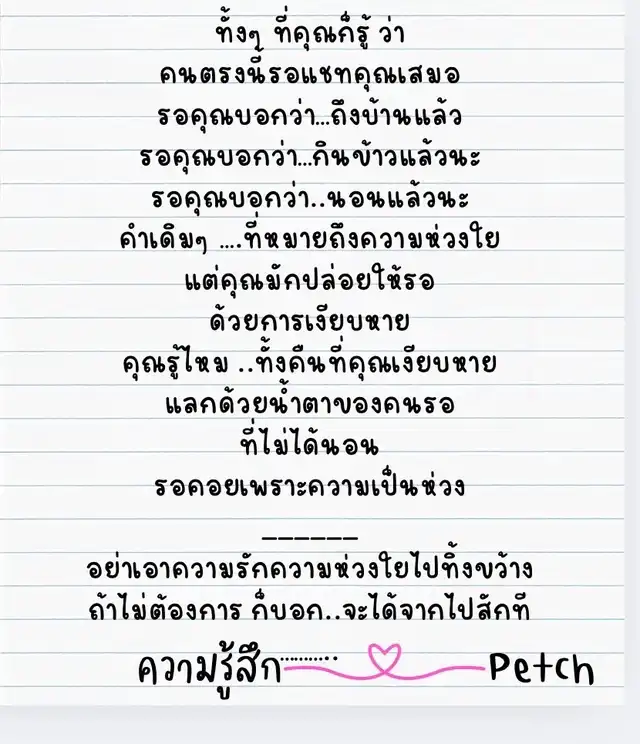 ทั้งๆ ที่คุณก็รู้ ว่า
คนตรงนี้รอแชทคุณเสมอ
รอคุณบอกว่า...ถึงบ้านแล้ว
รอคุณบอกว่า...กินข้าวแล้วนะ
รอคุณบอกว่า..นอนแล้วนะ
คำเดิมๆ ....ที่หมายถึงความห่วงใย
แต่คุณมักปล่อยให้รอ
ด้วยการเงียบหาย
คุณรู้ไหม ..ทั้งคืนที่คุณเงียบหาย
แลกด้วยน้ำตาของคนรอ
ที่ไม่ได้นอน
รอคอยเพราะความเป็นห่วง
______
อย่าเอาความรักความห่วงใยไปทิ้งขว้าง
ถ้าไม่ต้องการ ก็บอก..จะได้จากไปสักที
ความรู้สึก.......... Petch